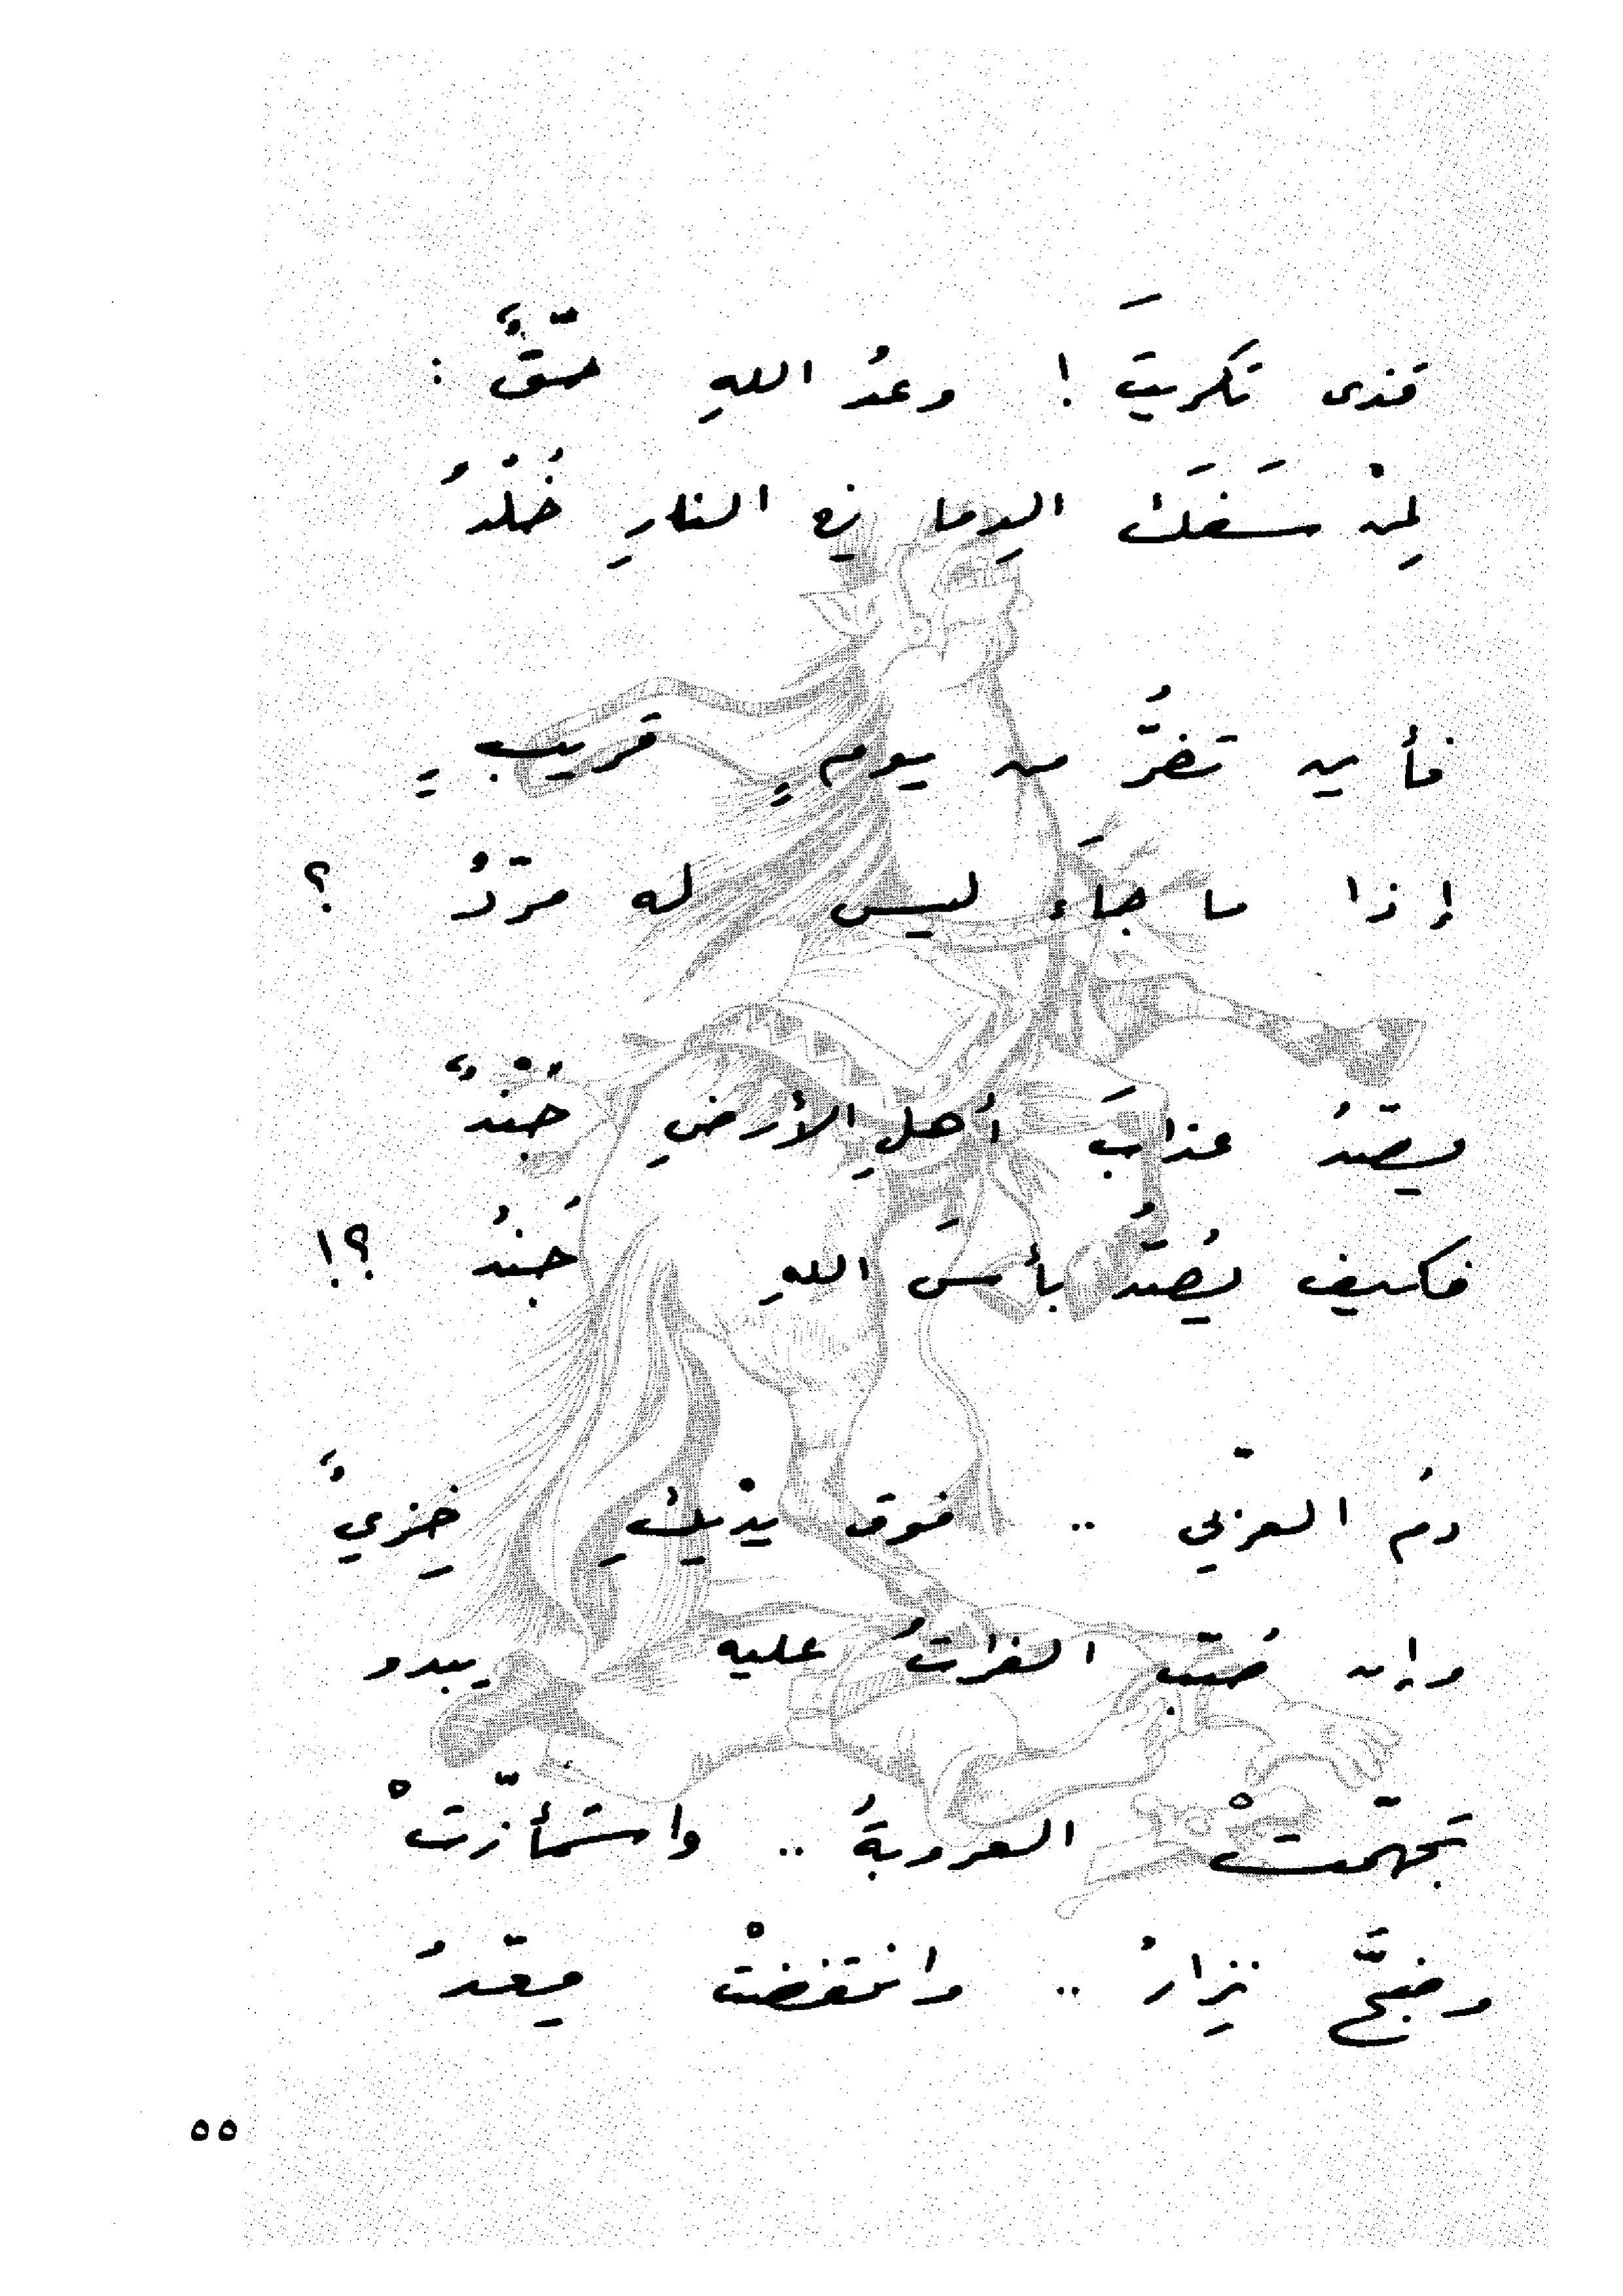 قذى تكريتَ ! وعدُ اللهِ حقٌّ :
لِمنْ سَفَكَ الدِما في النارِ خُلْدُ
فأين تفرُّ من يومٍ قريبٍ
إذا ما جاءَ ليس له مردُّ ؟
يصدُّ عذابَ أهلِ الأرضِ جُنْدٌ
فكيف يُصدُّ بأسَ اللهِ جُندُ ؟!
دمُ العربّي .. فوق يدْيكِ خِزيٌ
وإن صُبّ الفراتُ عليه يبدو
تجهّمتْ العروبةُ .. واشمأزّتْ
وضجَّ نِزارُ .. وانتفضتْ معّدُ
٥٥